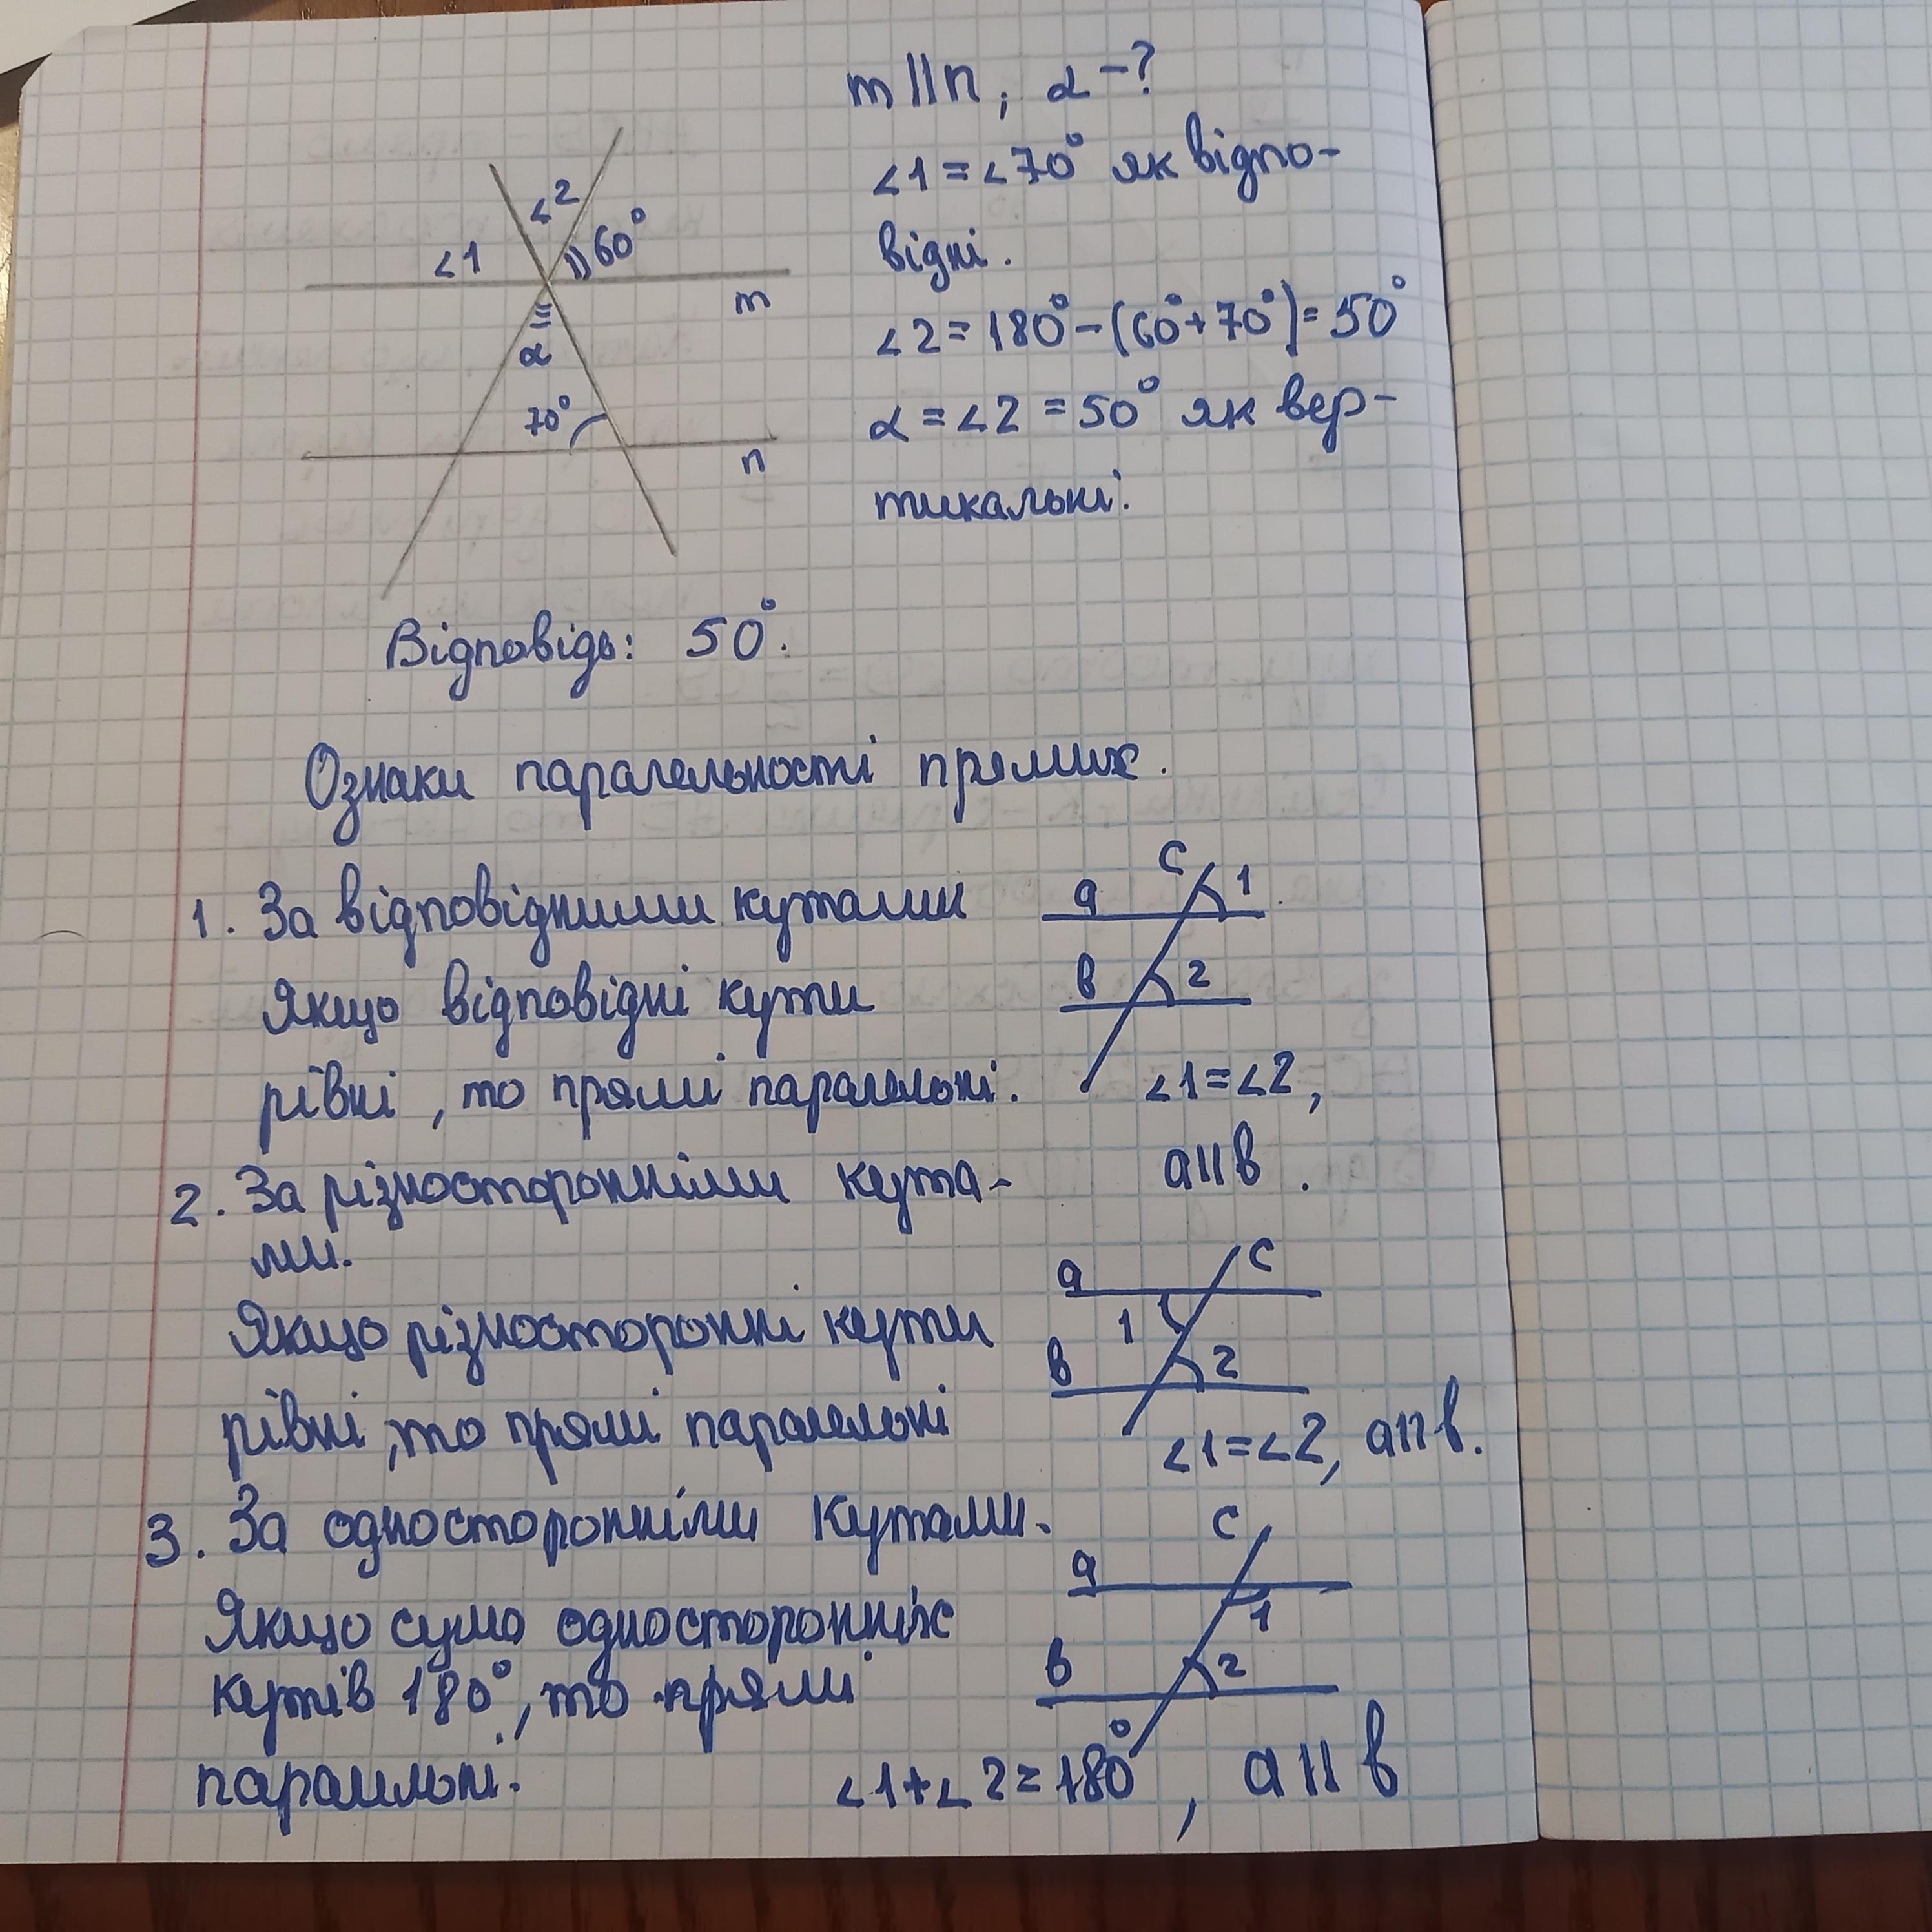 m||n, α-?
∠1 = ∠70° як відпо-
відні.
∠2 = 180° - (60° + 70°) = 50°
α = ∠2 = 50° як вер-
тикальні.
∠2
∠1
60°
m
α
70°
n
Відповідь: 50°.
Ознаки паралельності прямих.
1. За відповідними кутами
Якщо відповідні кути
рівні, то прямі паралельні.
c
a
1
в
2
∠1=∠2,
a||в.
2. За різносторонніми кута-
ми.
Якщо різносторонні кути
рівні, то прямі паралельні
a
c
1
в
2
∠1=∠2, a||в.
3. За односторонніми кутами.
Якщо сума односторонніх
кутів 180°, то прямі
паралельні.
c
a
1
в
2
∠1+∠2=180°, a||в